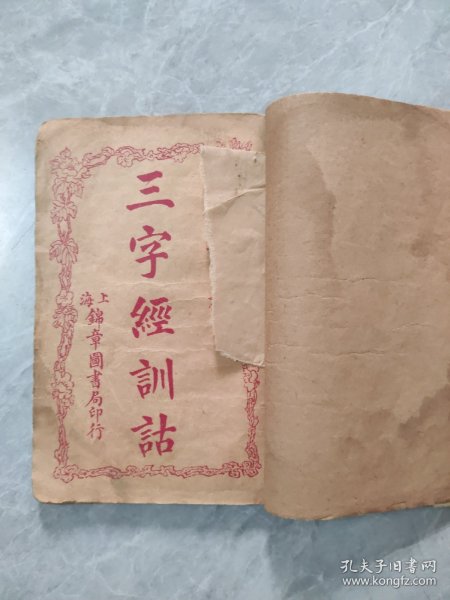 三字經訓詁
上海錦章圖書局印行
孔夫子旧书网
www.kongfz.com